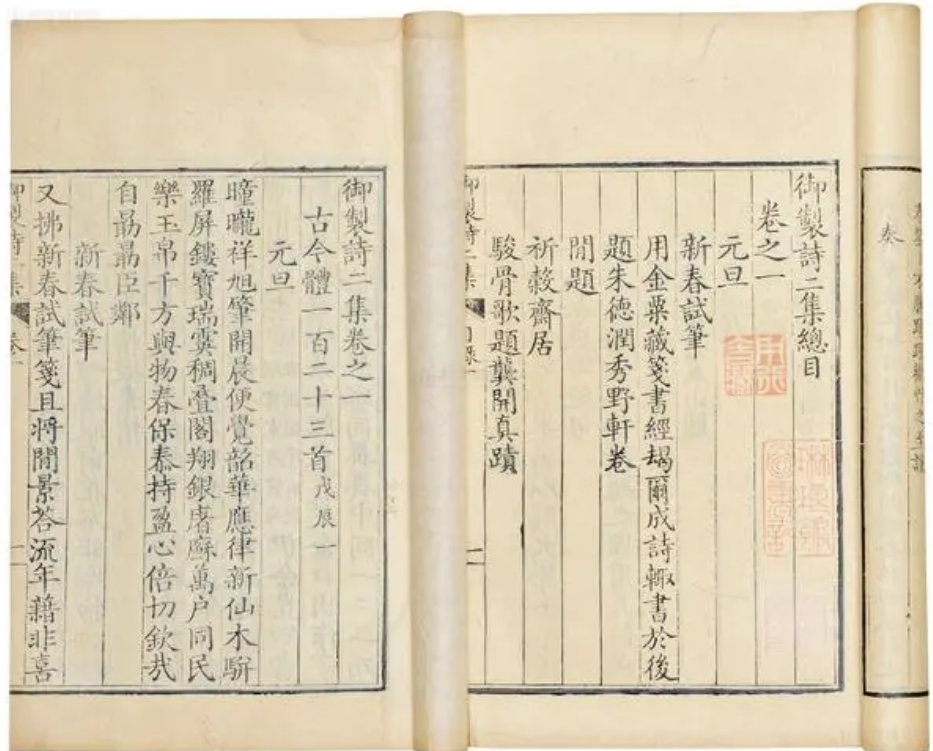 奏
御製詩二集總目
卷之一
元旦
新春試筆
用金粟藏箋書經朅爾成詩輙書於後
題朱德潤秀野軒卷
閒題
祈穀齋居
駿骨歌題龔開真蹟
御製詩二集
一
御製詩二集卷之一
古今體一百二十三首戊辰一
元旦
曈曨祥旭筆開晨便覺韶華應律新仙木駢
羅屏鏤寶瑞霙稠疊閣翔銀屠蘇萬户同民
樂玉帛千方與物春保泰持盈心倍切欽哉
自勗勗臣鄰
新春試筆
又拂新春試筆箋且將閒景荅流年藉非喜
御製詩二集 卷一
一